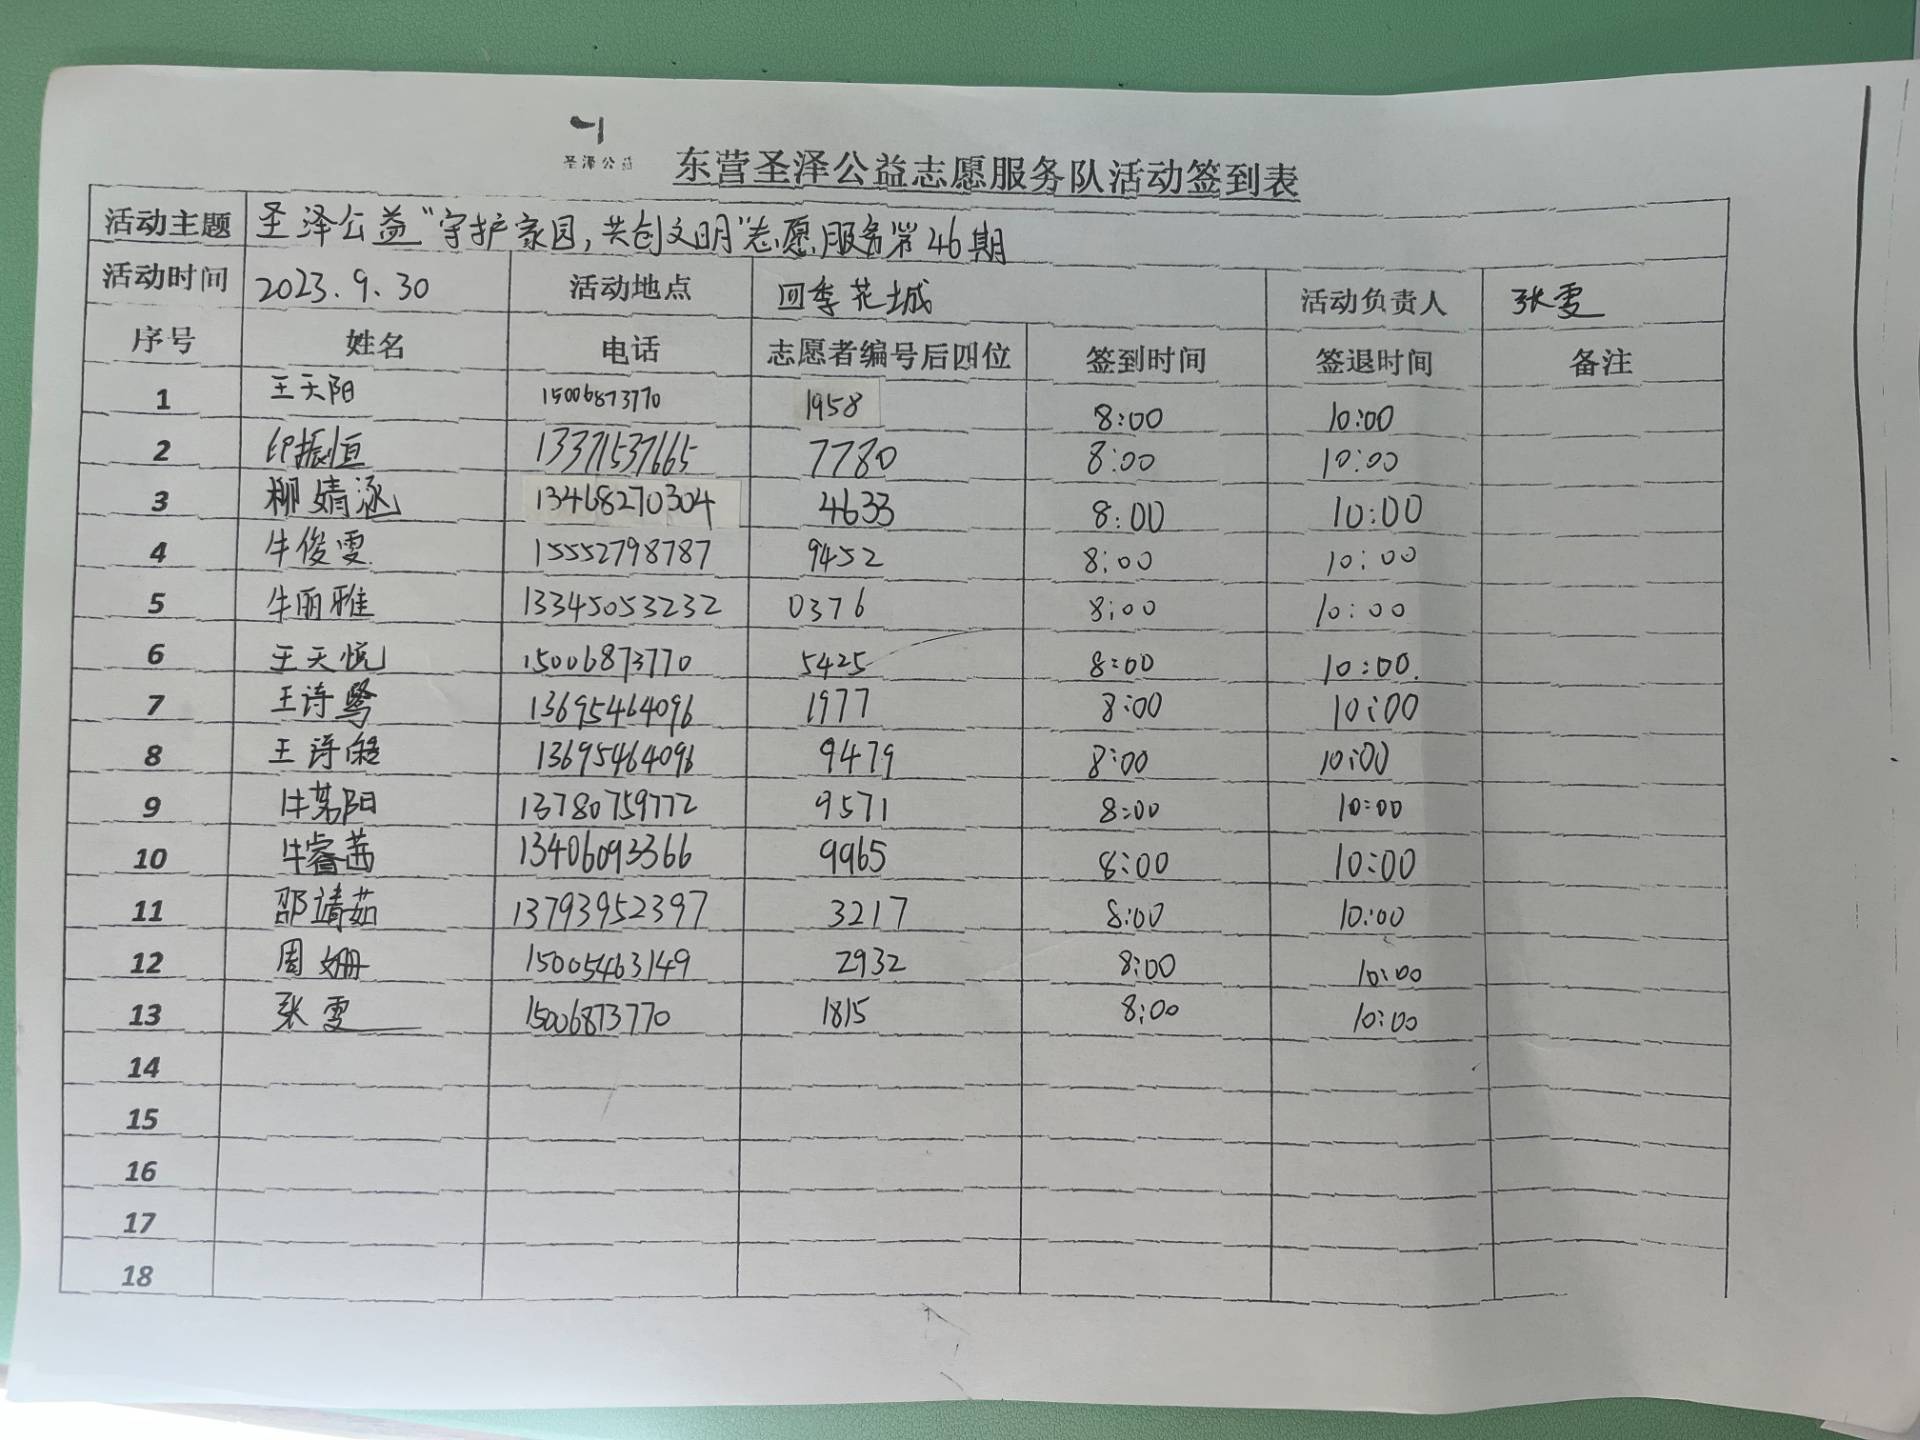 圣泽公益
东营圣泽公益志愿服务队活动签到表
活动主题 圣泽公益“守护家园,共创文明”志愿服务第46期
活动时间 2023.9.30 活动地点 四季花城 活动负责人 张雯
序号 姓名 电话 志愿者编号后四位 签到时间 签退时间 备注
1 王天阳 15006873770 1958 8:00 10:00
2 印振恒 13371537665 7780 8:00 10:00
3 柳婧涵 13468270304 4633 8:00 10:00
4 牛俊雯 15552798787 9452 8:00 10:00
5 牛丽雅 13345053232 0376 8:00 10:00
6 王天悦 15006873770 5425 8:00 10:00
7 王诗鹭 13695464096 1977 8:00 10:00
8 王诗 13695464096 9479 8:00 10:00
9 牛茗阳 13780759772 9571 8:00 10:00
10 牛睿茜 13406093366 9965 8:00 10:00
11 邵靖茹 13793952397 3217 8:00 10:00
12 周姗 15005463149 2932 8:00 10:00
13 张雯 15006873770 1815 8:00 10:00
14
15
16
17
18